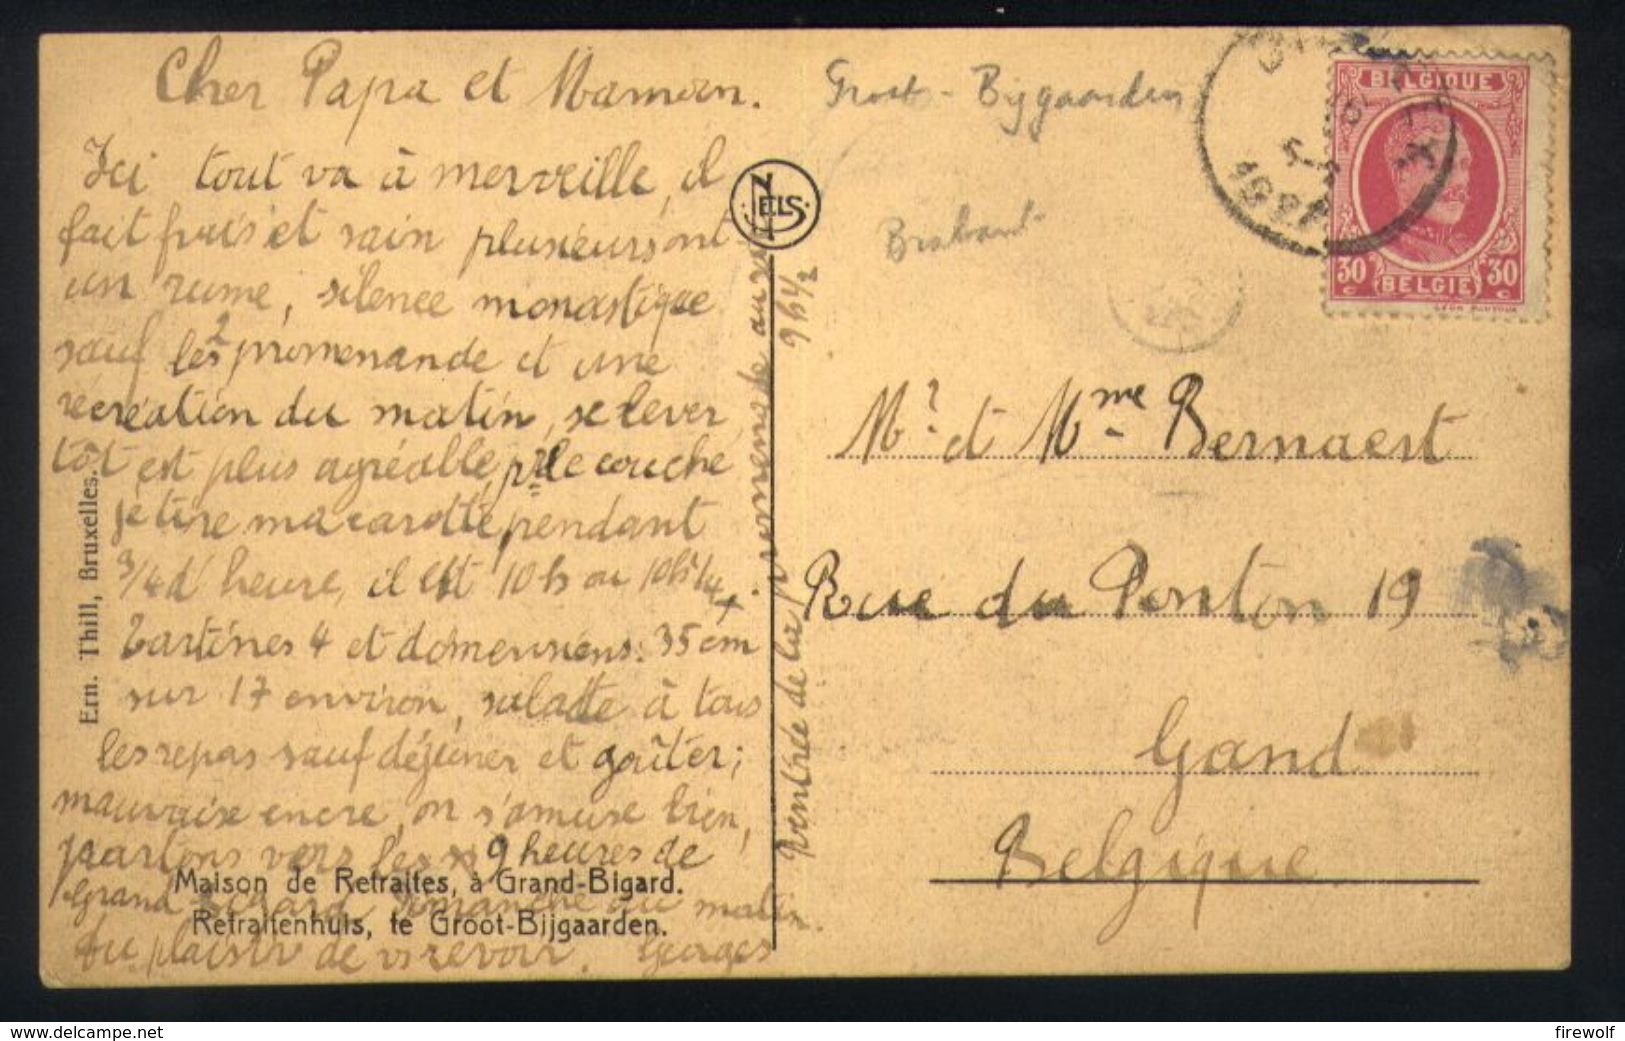 Cher Papa et Maman.
Ici tout va à merveille, il
fait frais et sain plusieurs ont
un rume, silence monastique
sauf les 2 promenande et une
récréation du matin, se lever
tôt est plus agréable, pr le couche
je tire ma carotte pendant
3/4 d'heure, il est 10 h ou 10 h 1/4
tartines 4 et demi 35 cm
sur 17 environ, salade à tous
les repas sauf déjeuner et goûter;
mauvaise encre, on s'amuse bien,
partons vers les 9 heures de
Grand Bigard, Dimanche au matin.
du plaisir de vs revoir. Georges
Rentrée de la promenade
9h 1/2
Ern. Thill, Bruxelles.
NELS
Maison de Retraites, à Grand-Bigard.
Retraitenhuis, te Groot-Bijgaarden.
Groot-Bijgaarden
Brabant
BELGIQUE
30 30
BELGIE
Mr et Mme Bernaest
Rue du Ponton 19
Gand
Belgique
www.delcampe.net
firewolf